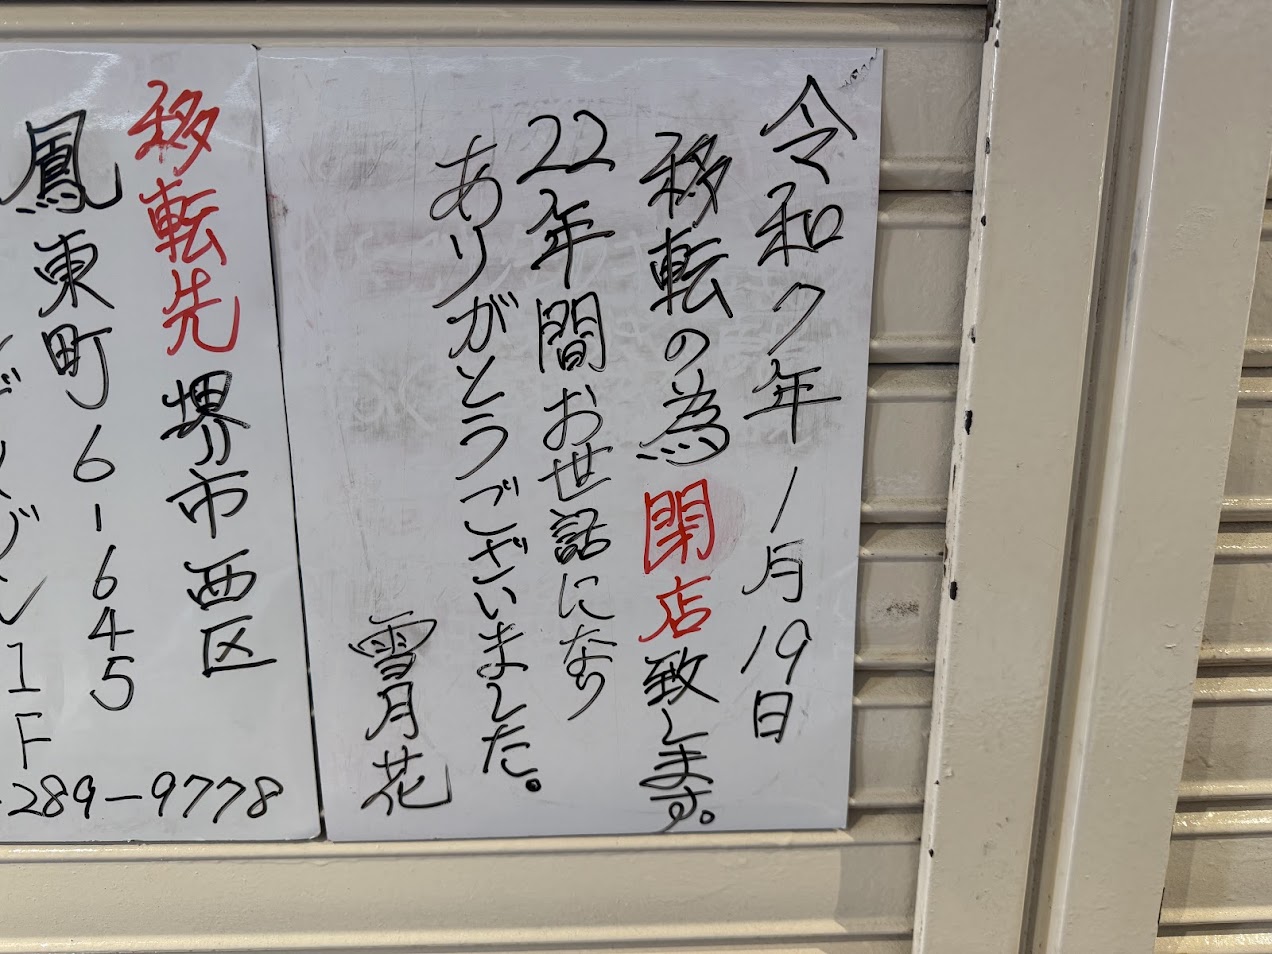 令和7年1月19日
移転の為閉店致します。
22年間お世話になり
ありがとうございました。
雪月花
移転先 堺市西区
鳳東町6-645
1F
289-9778